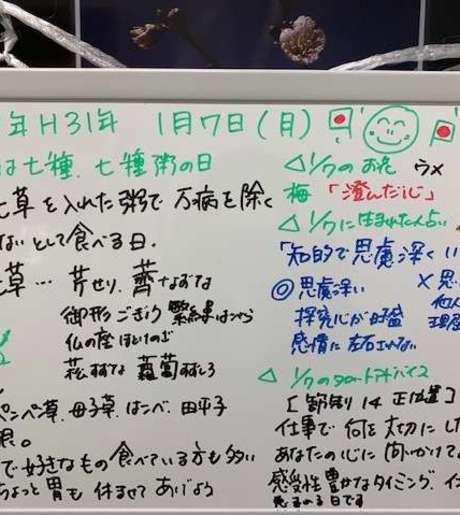 年 H31年 1月7日(月)
は七種、七種粥の日
七草を入れた粥で 万病を除く
ないとして食べる日.
草… 芹せり、薺なずな
御形 ごぎょう 繁縷はこべら
仏の座 ほとけのざ
菘すずな 蘿蔔すずしろ
ペンペン草、母子草、はこべ、田平子
根。
で好きなもの食べている方も多い
ちょっと胃も休ませてあげよう
△1/7のお花 ウメ
梅「澄んだ心」
△1/7に生まれた人占い
「知的で思慮深くい
◎思慮深い
探究心が旺盛
感情に左右されない
×思い
他人
理屈
△1/7のタロットアドバイス
[節制 14 正位置]
仕事で何を大切にした
あなたの心に向いかけて
感受性豊かなタイミング、イン
える日です